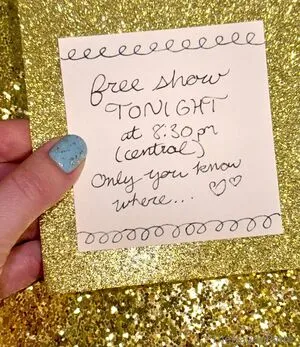 free show
TONIGHT
at 8:30pm
(central)
Only you know
where...